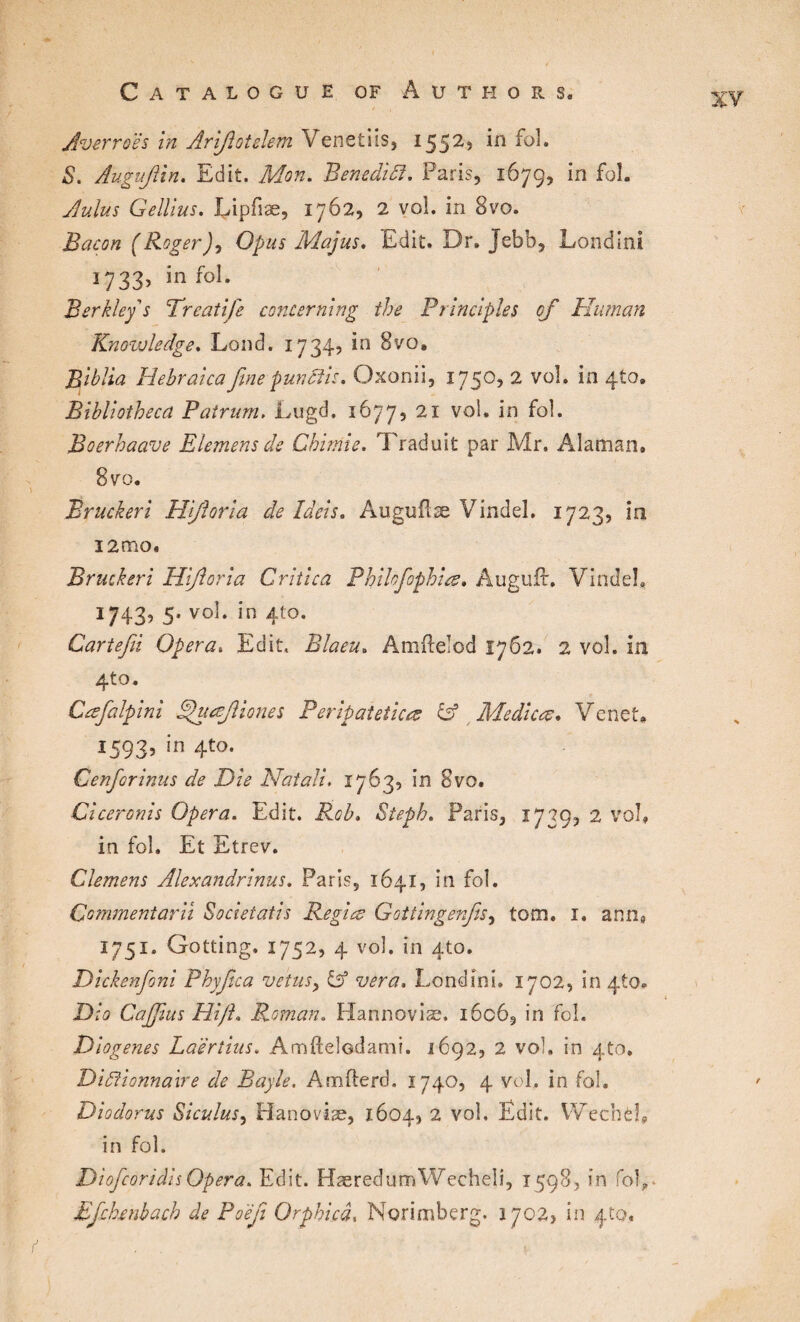 CATALOGUE OF AUTHORS. xv
Averroës in Ariſtotelem Venetiis, 1552, in fol.
S. Auguſtin. Edit. Mon. Benedict. Paris, 1679, in fol.
Aulus Gellius. Lipſiæ, 1762, 2 vol. in 8vo.
Bacon (Roger), Opus Majus. Edit. Dr. Jebb, Londini
1733, in fol.
Berkley's Treatiſe concerning the Principles of Human
Knowledge. Lond. 1734, in 8vo.
Biblia Hebraica ſine punctis. Oxonii, 1750, 2 vol. in 4to.
Bibliotheca Patrum. Lugd. 1677, 21 vol. in fol.
Boerhaave Elemens de Chimie. Traduit par Mr. Alaman.
8vo.
Bruckeri Hiſtoria de Ideis. Auguſtæ Vindel. 1723, in
12mo.
Bruckeri Hiſtoria Critica Philoſophiæ. Auguſt. Vindel.
1743, 5. vol. in 4to.
Carteſii Opera. Edit. Blaeu. Amſtelod 1762. 2 vol. in
4to.
Cæſalpini Quæſtiones Peripateticæ & Medicæ. Venet.
1593, in 4to.
Cenſorinus de Die Natali. 1763, in 8vo.
Ciceronis Opera. Edit. Rob. Steph. Paris, 1739, 2 vol.
in fol. Et Etrev.
Clemens Alexandrinus. Paris, 1641, in fol.
Commentarii Societatis Regiæ Gottingenſis, tom. 1. ann.
1751. Gotting. 1752, 4 vol. in 4to.
Dickenſoni Phyſica vetus, & vera. Londini. 1702, in 4to.
Dio Caſſius Hiſt. Roman. Hannoviæ. 1606, in fol.
Diogenes Laërtius. Amſtelodami. 1692, 2 vol. in 4to.
Dictionnaire de Bayle. Amſterd. 1740, 4 vol. in fol.
Diodorus Siculus, Hanoviæ, 1604, 2 vol. Edit. Wechel,
in fol.
Dioſcoridis Opera. Edit. HæredumWecheli, 1598, in fol.
Eſchenbach de Poëſi Orphicâ, Norimberg. 1702, in 4to.